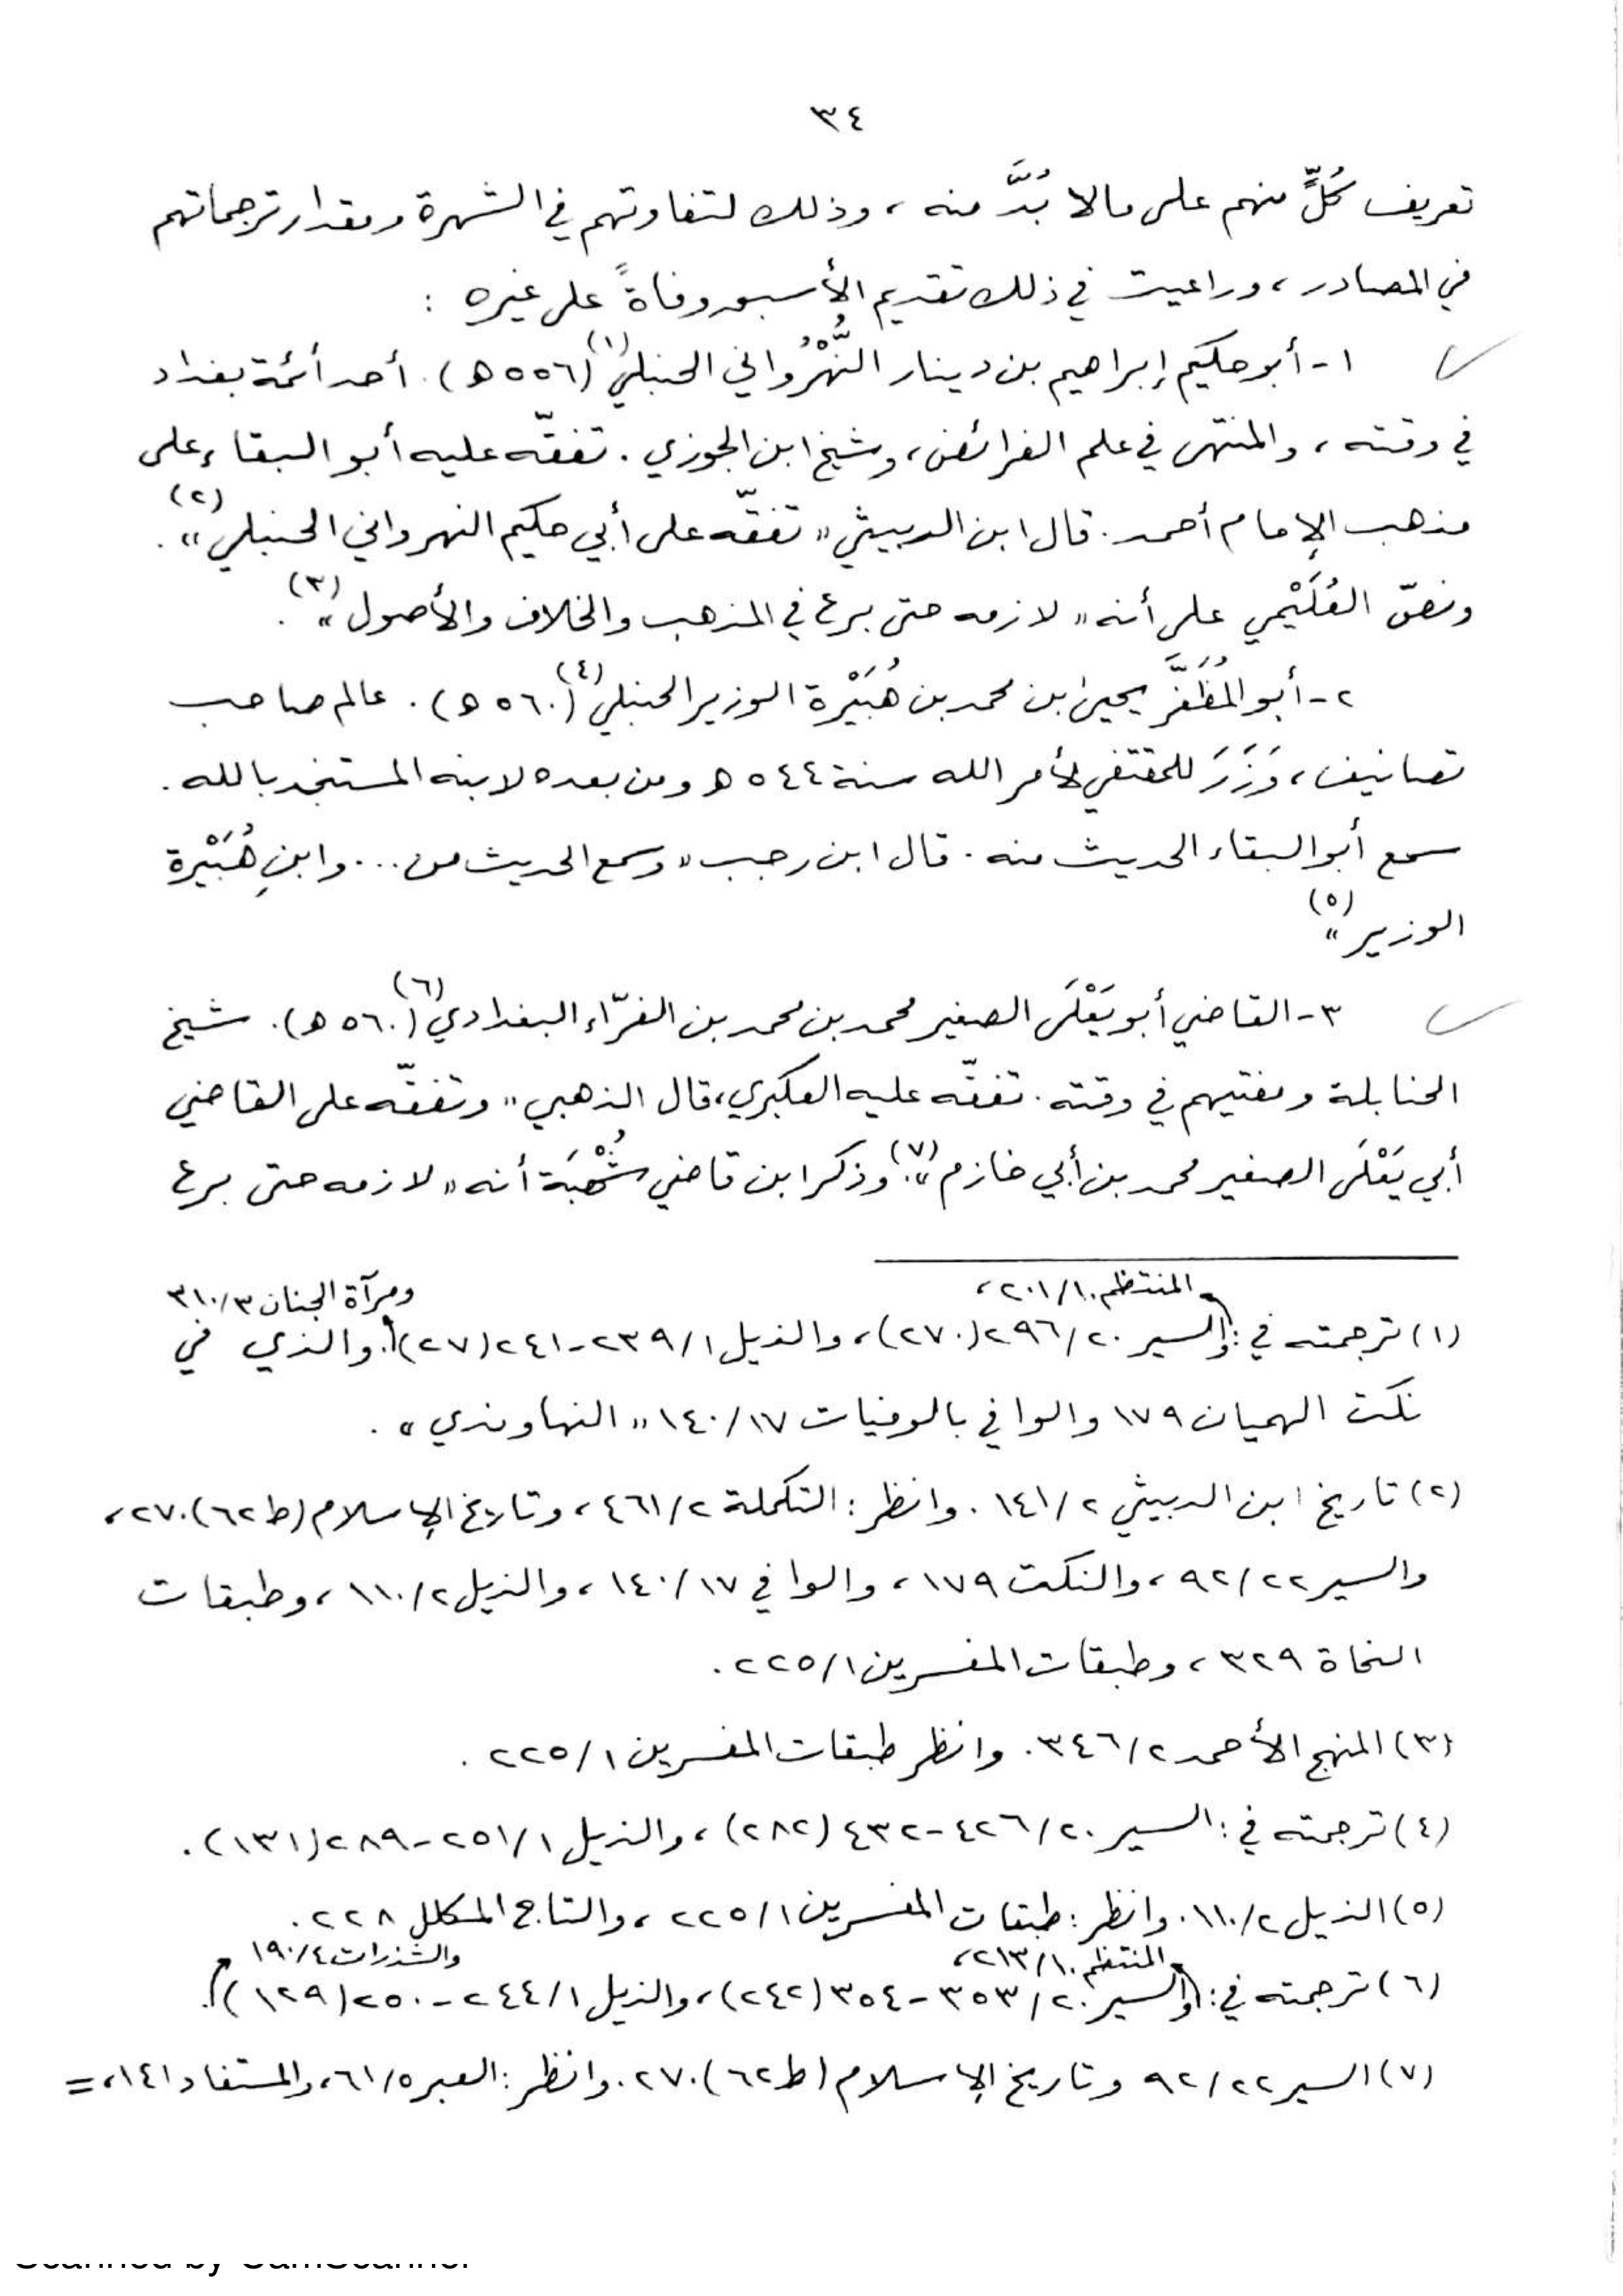 ٣٤
تعريف كُلٍّ منهم على مالا بُدَّ منه ، وذلك لتفاوتهم في الشهرة ومقدار ترجماتهم
في المصادر ، وراعيت في ذلك تقديم الأسبق وفاةً على غيره :
١- أبو حكيم إبراهيم بن دينار النُّهْرُواني الحنبلي(١) (٥٥٦ ه) . أحد أئمة بغداد
في وقته ، والمنتهى في علم الفرائض ، وشيخ ابن الجوزي . تفقّه عليه أبو البقاء على
مذهب الإمام أحمد . قال ابن الدبيثي « تفقّه على أبي حكيم النهرواني الحنبلي »(٢) .
ونصّ العُلَيْمي على أنه « لازمه حتى برع في المذهب والخلاف والأصول »(٣) .
٢- أبو المُظَفَّر يحيى بن محمد بن هُبَيْرة الوزير الحنبلي(٤) (٥٦٠ ه) . عالم صاحب
تصانيف ، وَزَرَ للمقتفي لأمر الله سنة ٥٤٤ ه ومن بعده لابنه المستنجد بالله .
سمع أبو البقاء الحديث منه . قال ابن رجب « وسمع الحديث من ... وابنِ هُبَيْرة
الوزير »(٥)
٣- القاضي أبو يَعْلَى الصغير محمد بن محمد بن الفرّاء البغدادي(٦) (٥٦٠ ه) . شيخ
الحنابلة ومفتيهم في وقته . تفقّه عليه العكبري ، قال الذهبي « وتفقّه على القاضي
أبي يَعْلَى الصغير محمد بن أبي خازم »(٧). وذكر ابن قاضي شُهْبَة أنه « لازمه حتى برع
(١) ترجمته في : المنتظم ٢٠١/١٠ ، والسير ٢٩٦/٢٠ (٢٧٠) ، والذيل ٢٣٩/١-٢٤١ (٢٧) ومرآة الجنان ٣١٠/٣ . والذي في
نكت الهميان ١٧٩ والوافي بالوفيات ١٤٠/١٧ « النهاوندي » .
(٢) تاريخ ابن الدبيثي ١٤١/٢ . وانظر : التكملة ٤٦١/٢ ، وتاريخ الإسلام (ط ٦٢) ٢٧٠ ،
والسير ٩٢/٢٢ ، والنكت ١٧٩ ، والوافي ١٤٠/١٧ ، والذيل ١١٠/٢ ، وطبقات
النحاة ٣٢٩ ، وطبقات المفسرين ٢٢٥/١ .
(٣) المنهج الأحمد ٣٤٦/٢ . وانظر طبقات المفسرين ٢٢٥/١ .
(٤) ترجمته في : السير ٤٢٦/٢٠-٤٣٢ (٢٨٢) ، والذيل ٢٥١/١-٢٨٩ (١٣١) .
(٥) الذيل ١١٠/٢ . وانظر : طبقات المفسرين ٢٢٥/١ ، والتاج المكلل ٢٢٨ .
(٦) ترجمته في : المنتظم ٢١٣/١٠ ، والسير ٣٥٣/٢٠-٣٥٤ (٢٤٢) ، والذيل ٢٤٤/١-٢٥٠ (١٢٩) والشذرات ١٩٠/٤ .
(٧) السير ٩٢/٢٢ وتاريخ الإسلام (ط ٦٢) ٢٧٠ . وانظر : العبر ٦١/٥ ، والمستفاد ١٤١ ، =
Scanned by CamScanner